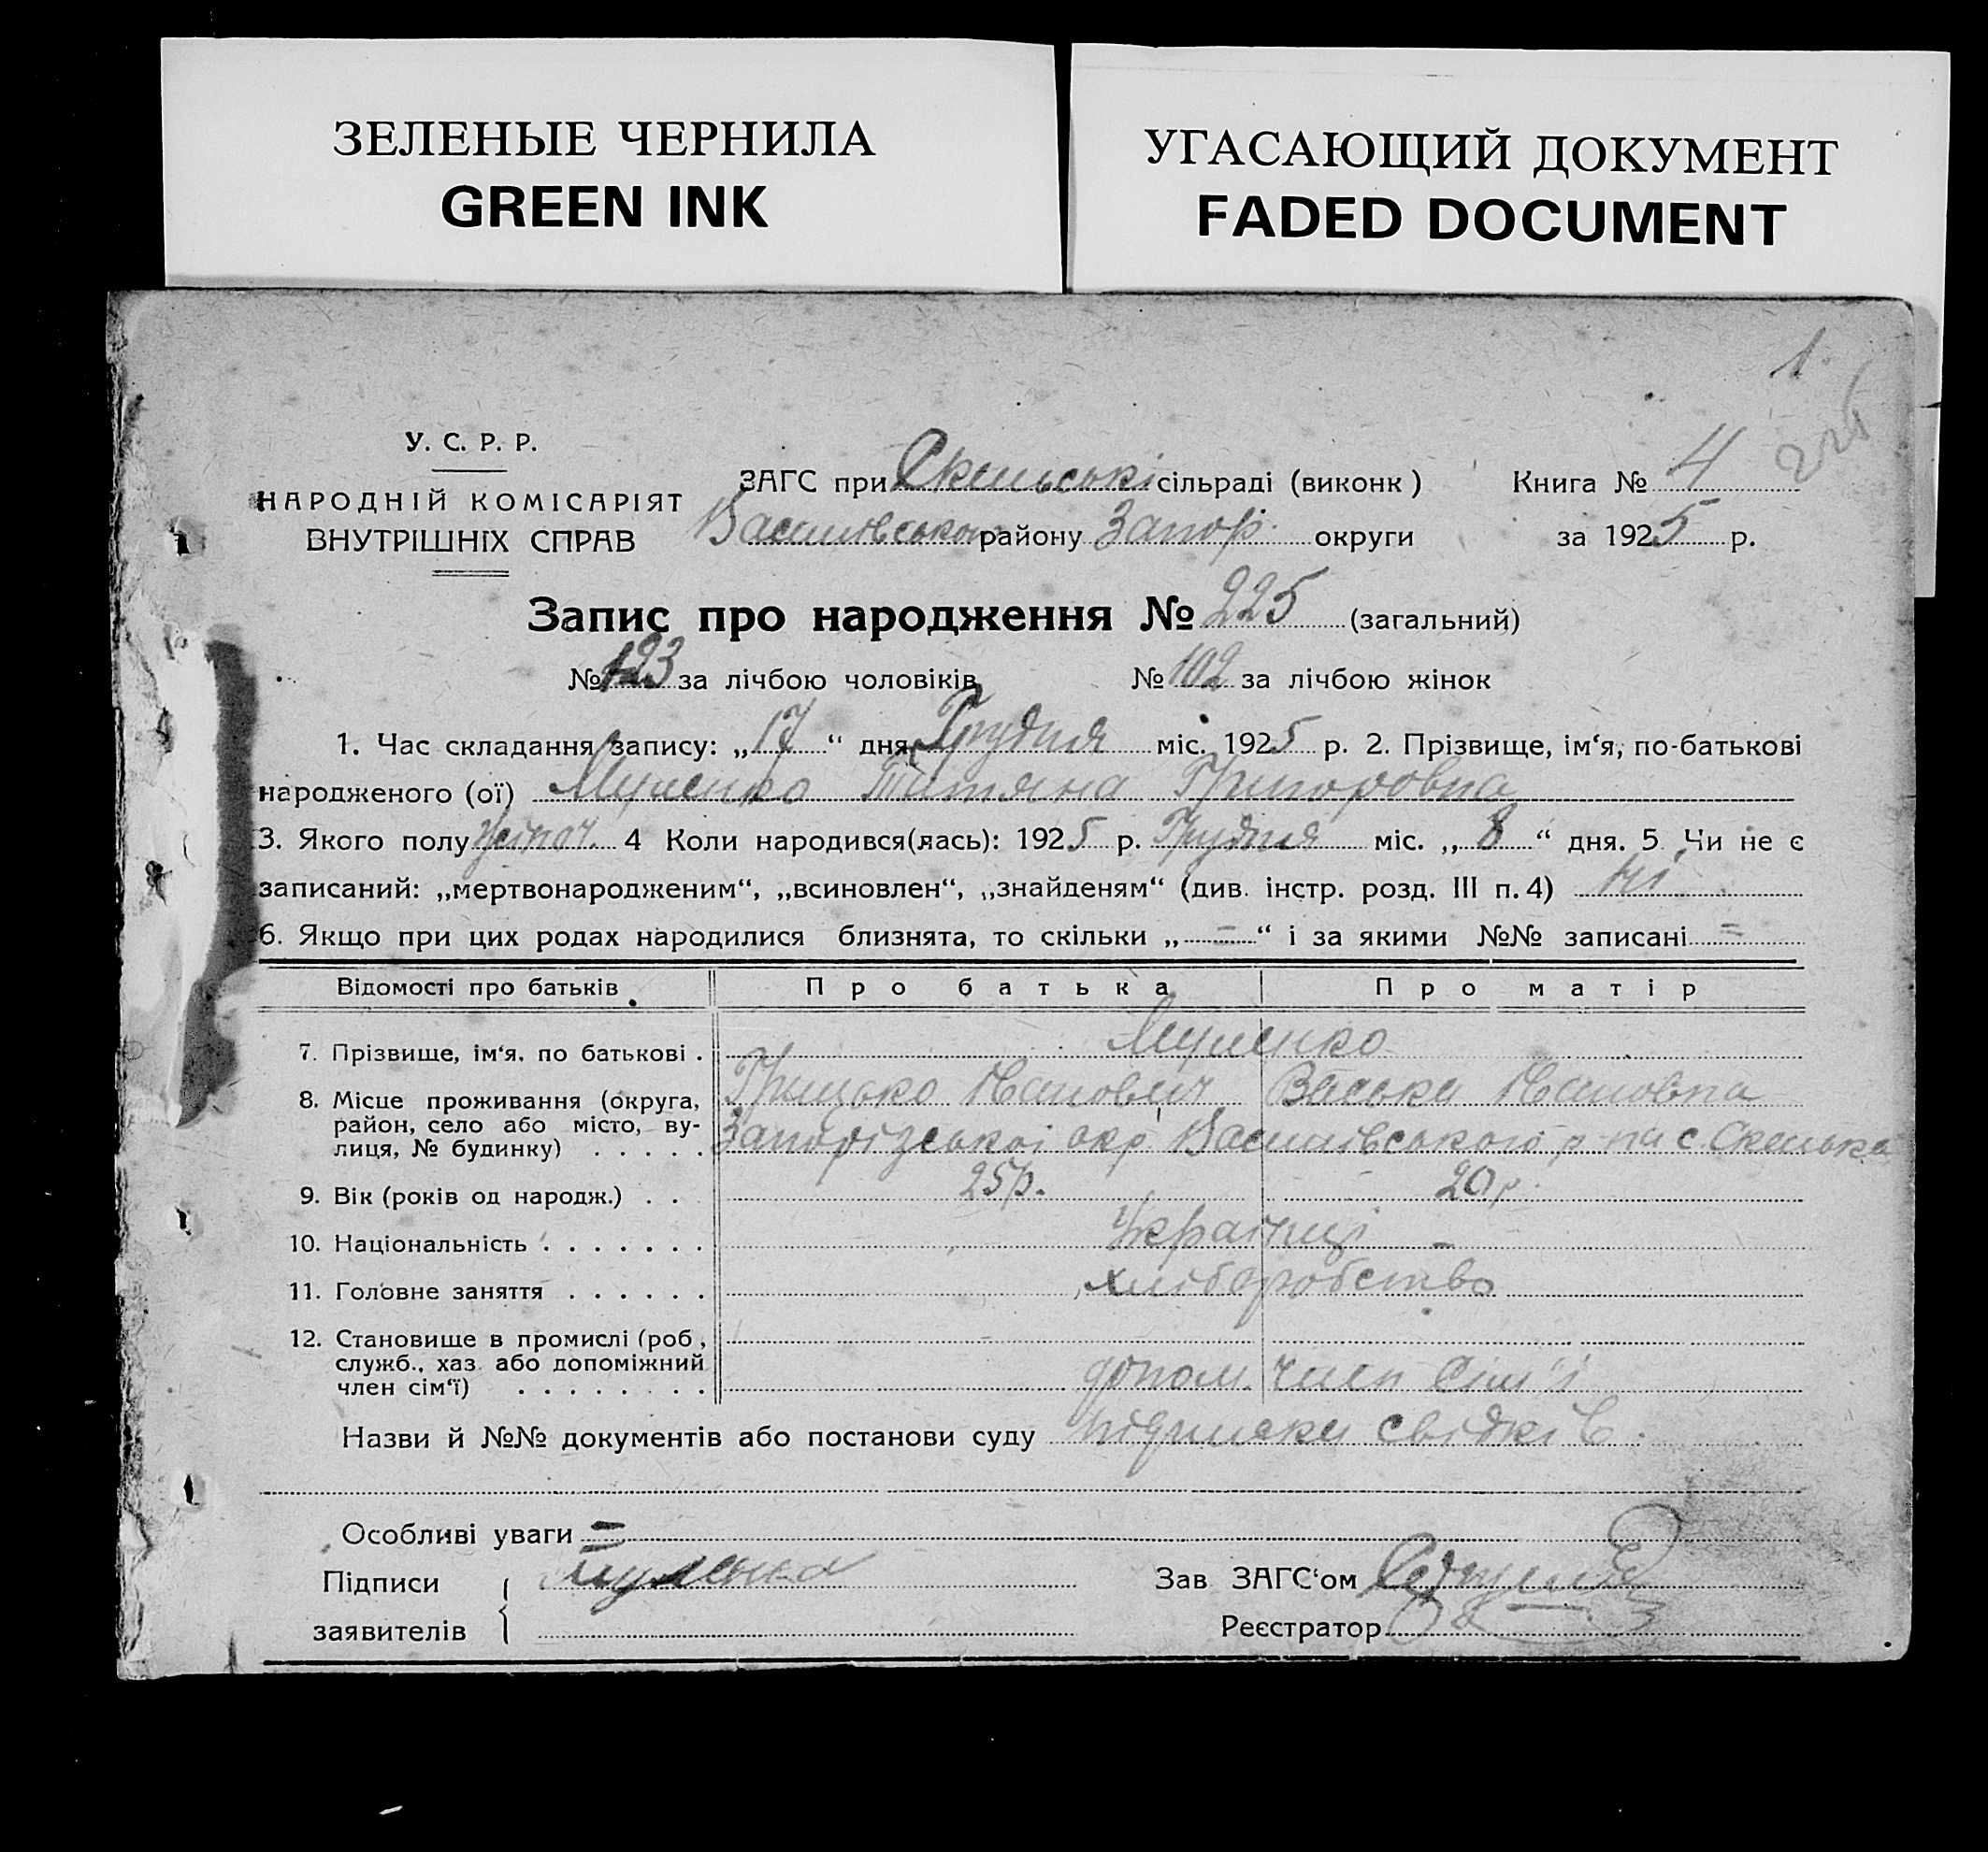 ЗЕЛЕНЫЕ ЧЕРНИЛА
GREEN INK
УГАСАЮЩИЙ ДОКУМЕНТ
FADED DOCUMENT
1
226
У. С. Р. Р.
НАРОДНІЙ КОМІСАРІЯТ
ВНУТРІШНІХ СПРАВ
ЗАГС при Скельські сільраді (виконк) Книга № 4
Василівського району Запор. округи за 1925 р.
Запис про народження № 225 (загальний)
№ 123 за лічбою чоловіків № 102 за лічбою жінок
1. Час складання запису: „17“ дня Грудня міс. 1925 р. 2. Прізвище, ім‘я, по-батькові
народженого (ої) Муленко Татяна Григоровна
3. Якого полу жіноч. 4 Коли народився(лась): 1925 р. Грудня міс. „8“ дня. 5 Чи не є
записаний: „мертвонародженим“, „всиновлен“, „знайденям“ (див. інстр. розд. III п. 4) ні
6. Якщо при цих родах народилися близнята, то скільки „-“ і за якими №№ записані =
Відомості про батьків Про батька Про матір
7. Прізвище, ім‘я, по батькові . Муленко
Грицько Іванович Васька Івановна
8. Місце проживання (округа,
район, село або місто, ву-
лиця, № будинку) . . . . . Запорізської окр Василівського р-на с. Скелька
9. Вік (років од народж.) . . 25 р. 20 р.
10. Національність . . . . . . . Українці
11. Головне заняття . . . . . . хліборобство
12. Становище в промислі (роб.,
служб., хаз. або допоміжний
член сім‘ї) . . . . . . . . допом. член сім'ї
Назви й №№ документів або постанови суду підписки свідків.
Особливі уваги =
Підписи Муленко
заявителів
Зав ЗАГС‘ом
Реєстратор